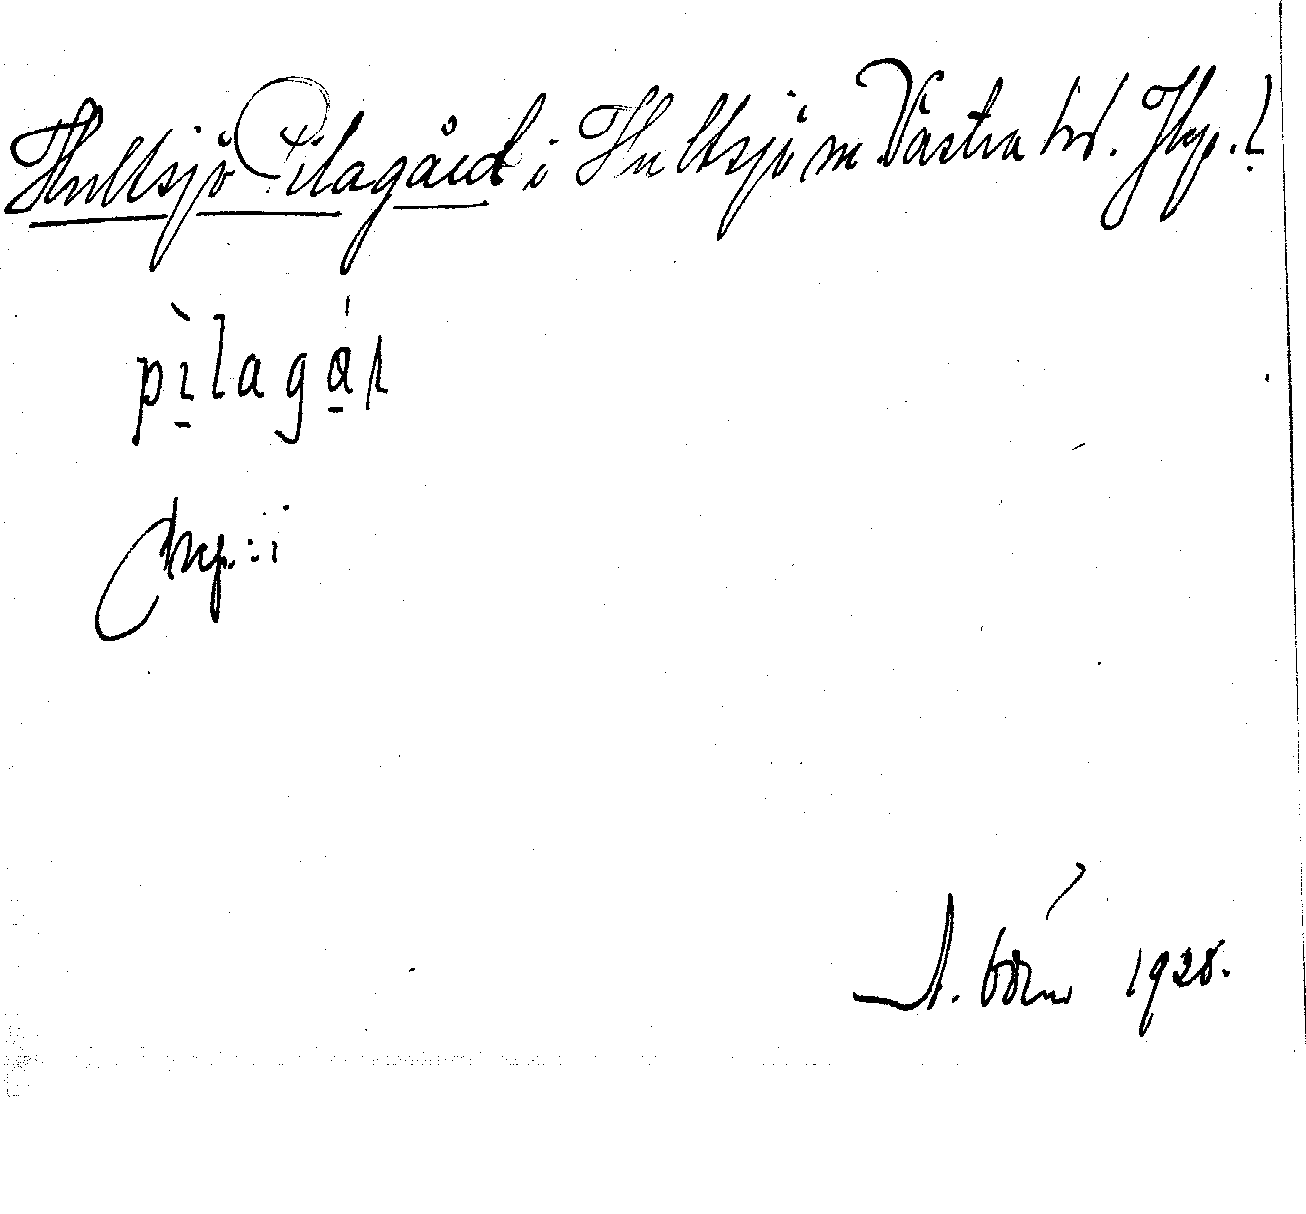 Hultsjö Pilagård i Hultsjö sn Västra hd. Jkp. l.
pìlagár
Prep.: i
A. 1928.